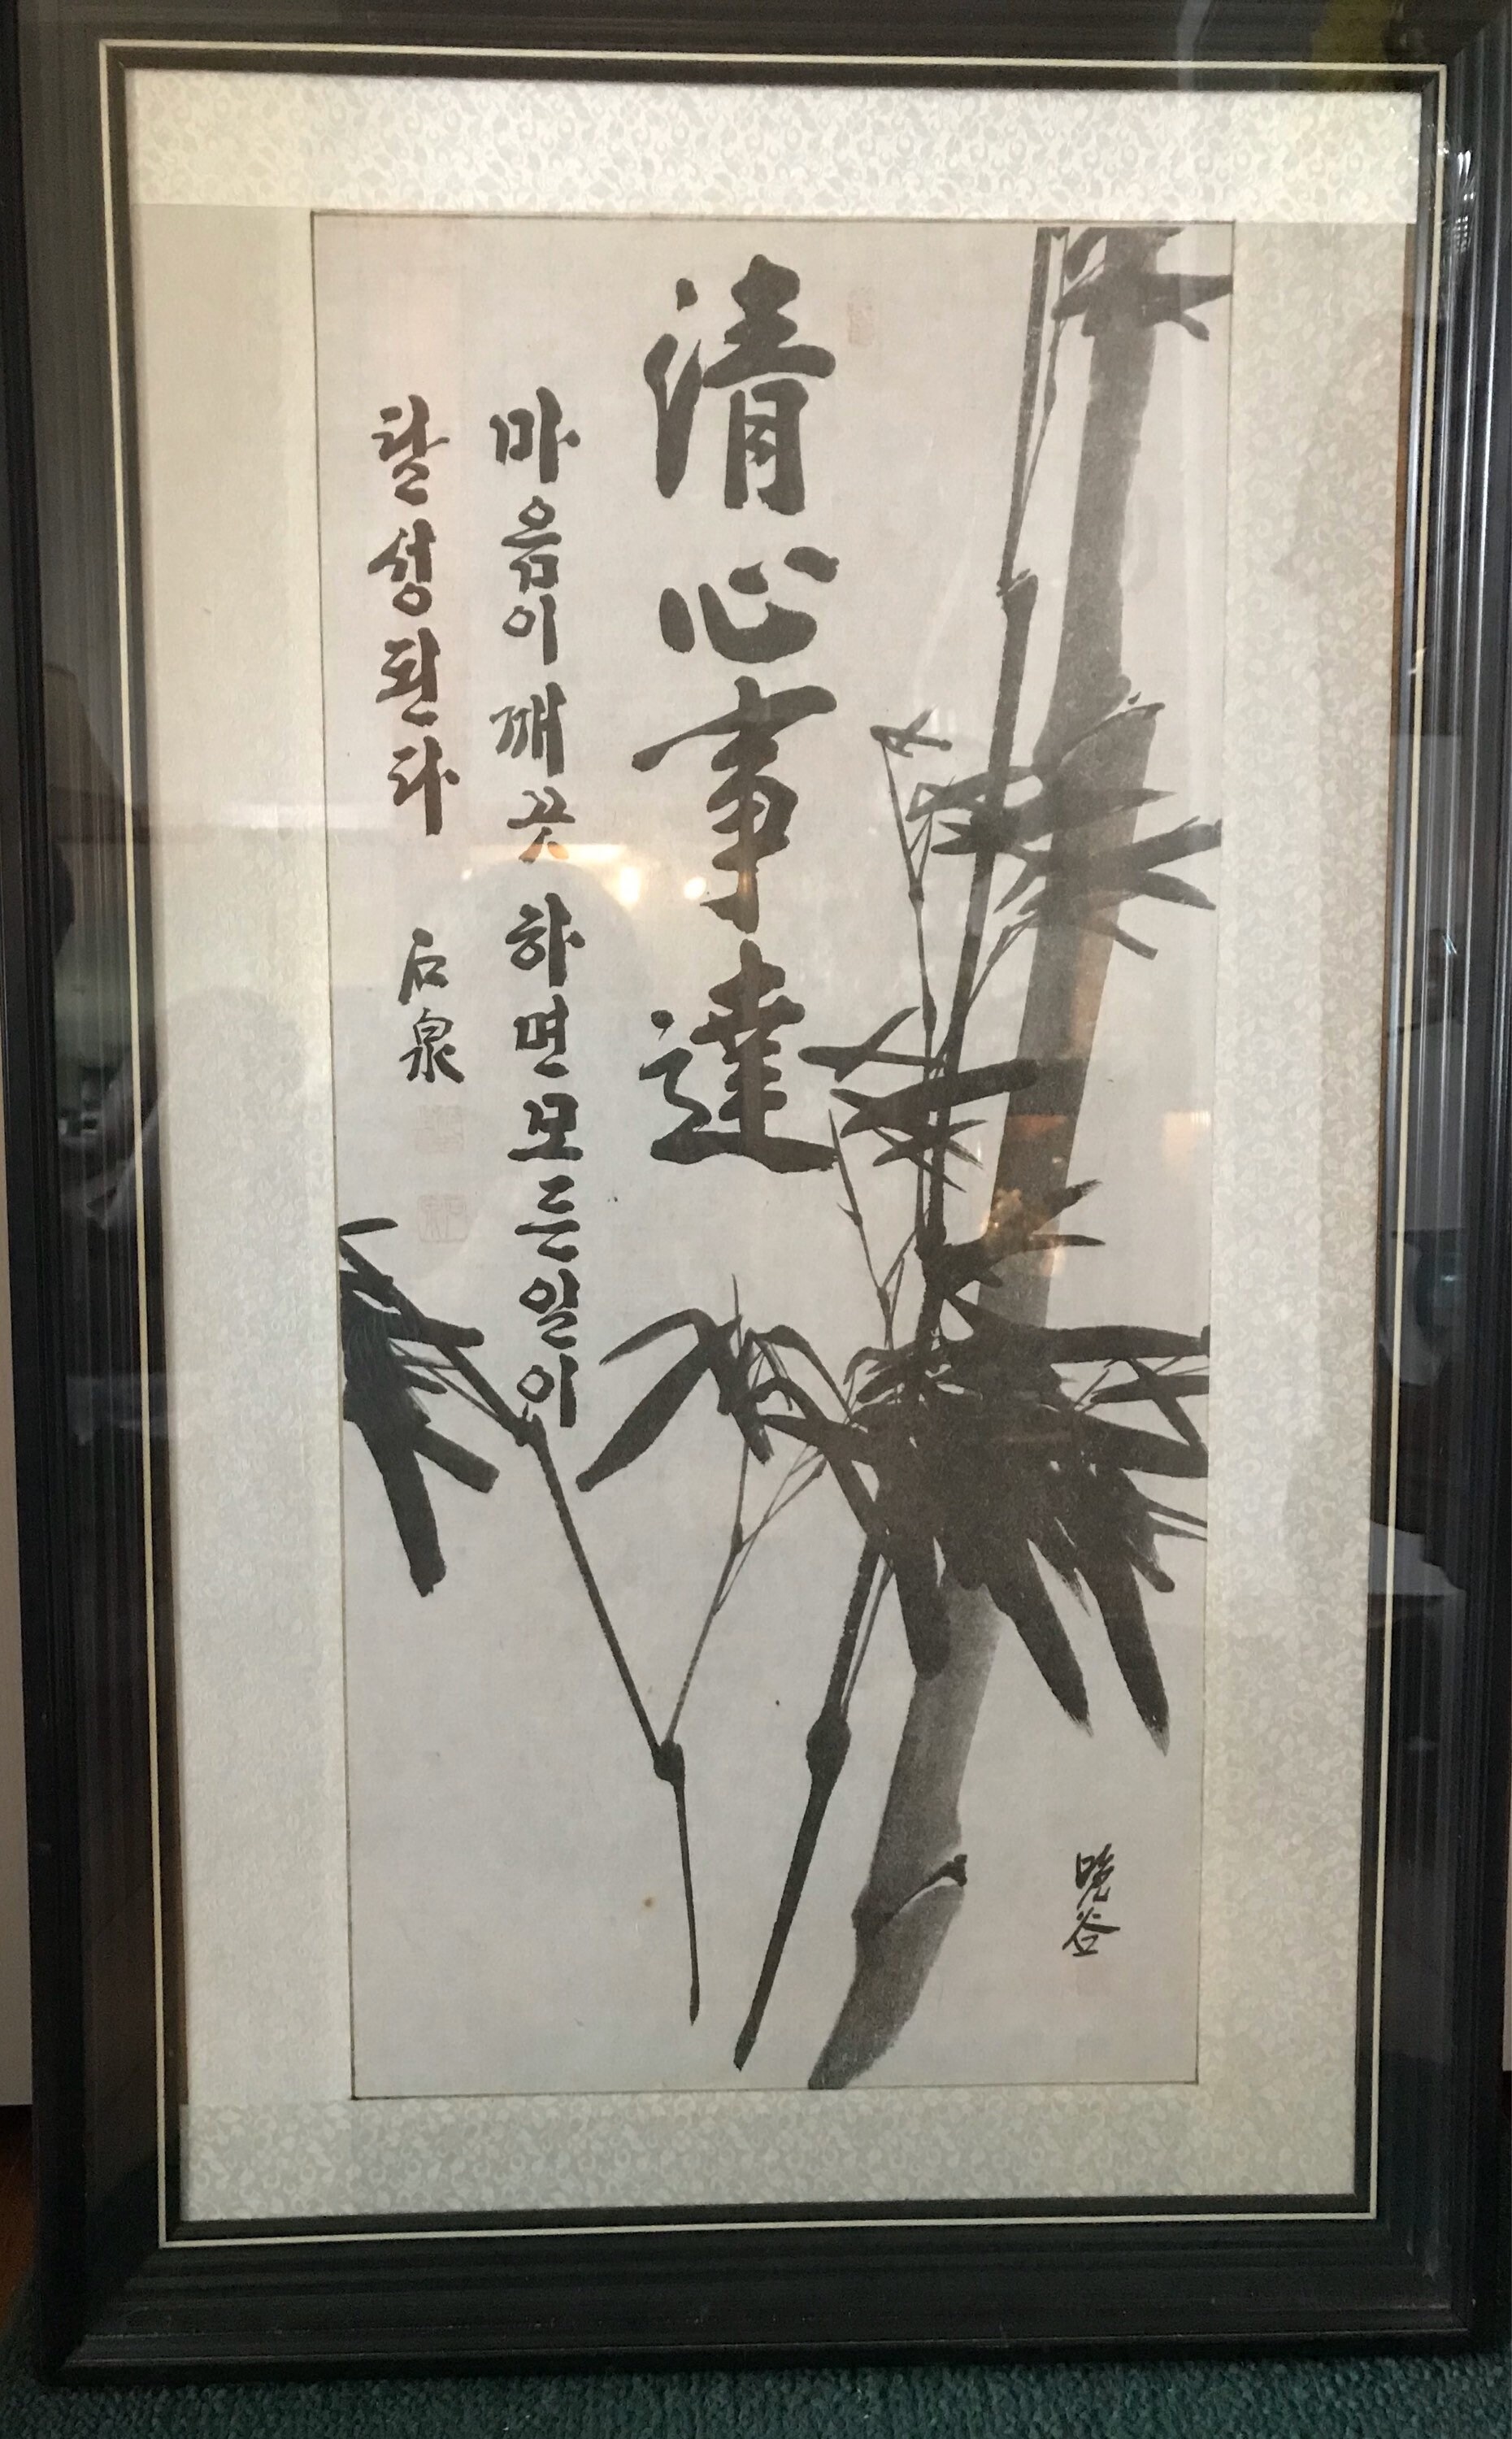 清心事達
마음이 깨끗 하면 모든일이
달성된다
石泉
晩谷